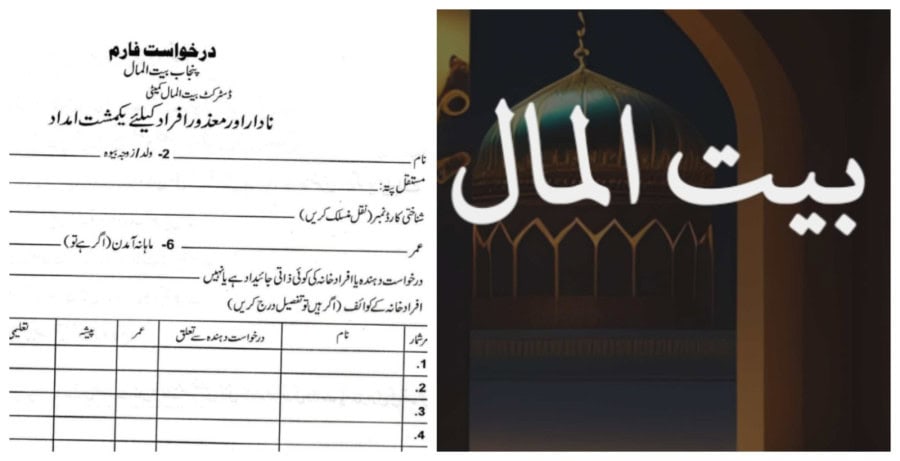 درخواست فارم
پنجاب بیت المال
ڈسٹرکٹ بیت المال کمیٹی
نادار اور معذور افراد کیلئے یکمشت امداد
نام ــــــ 2- ولد/زوجہ بیوہ ــــــ
مستقل پتہ: ــــــ
شناختی کارڈ نمبر (نقل منسلک کریں) ــــــ
عمر ــــــ 6- ماہانہ آمدن (اگر ہے تو) ــــــ
درخواست دہندہ یا افراد خانہ کی کوئی ذاتی جائیداد ہے یا نہیں ــــــ
افراد خانہ کے کوائف (اگر ہیں تو تفصیل درج کریں)
مرشمار نام درخواست دہندہ سے تعلق عمر پیشہ تعلیمی
1.
2.
3.
4.
بیت المال